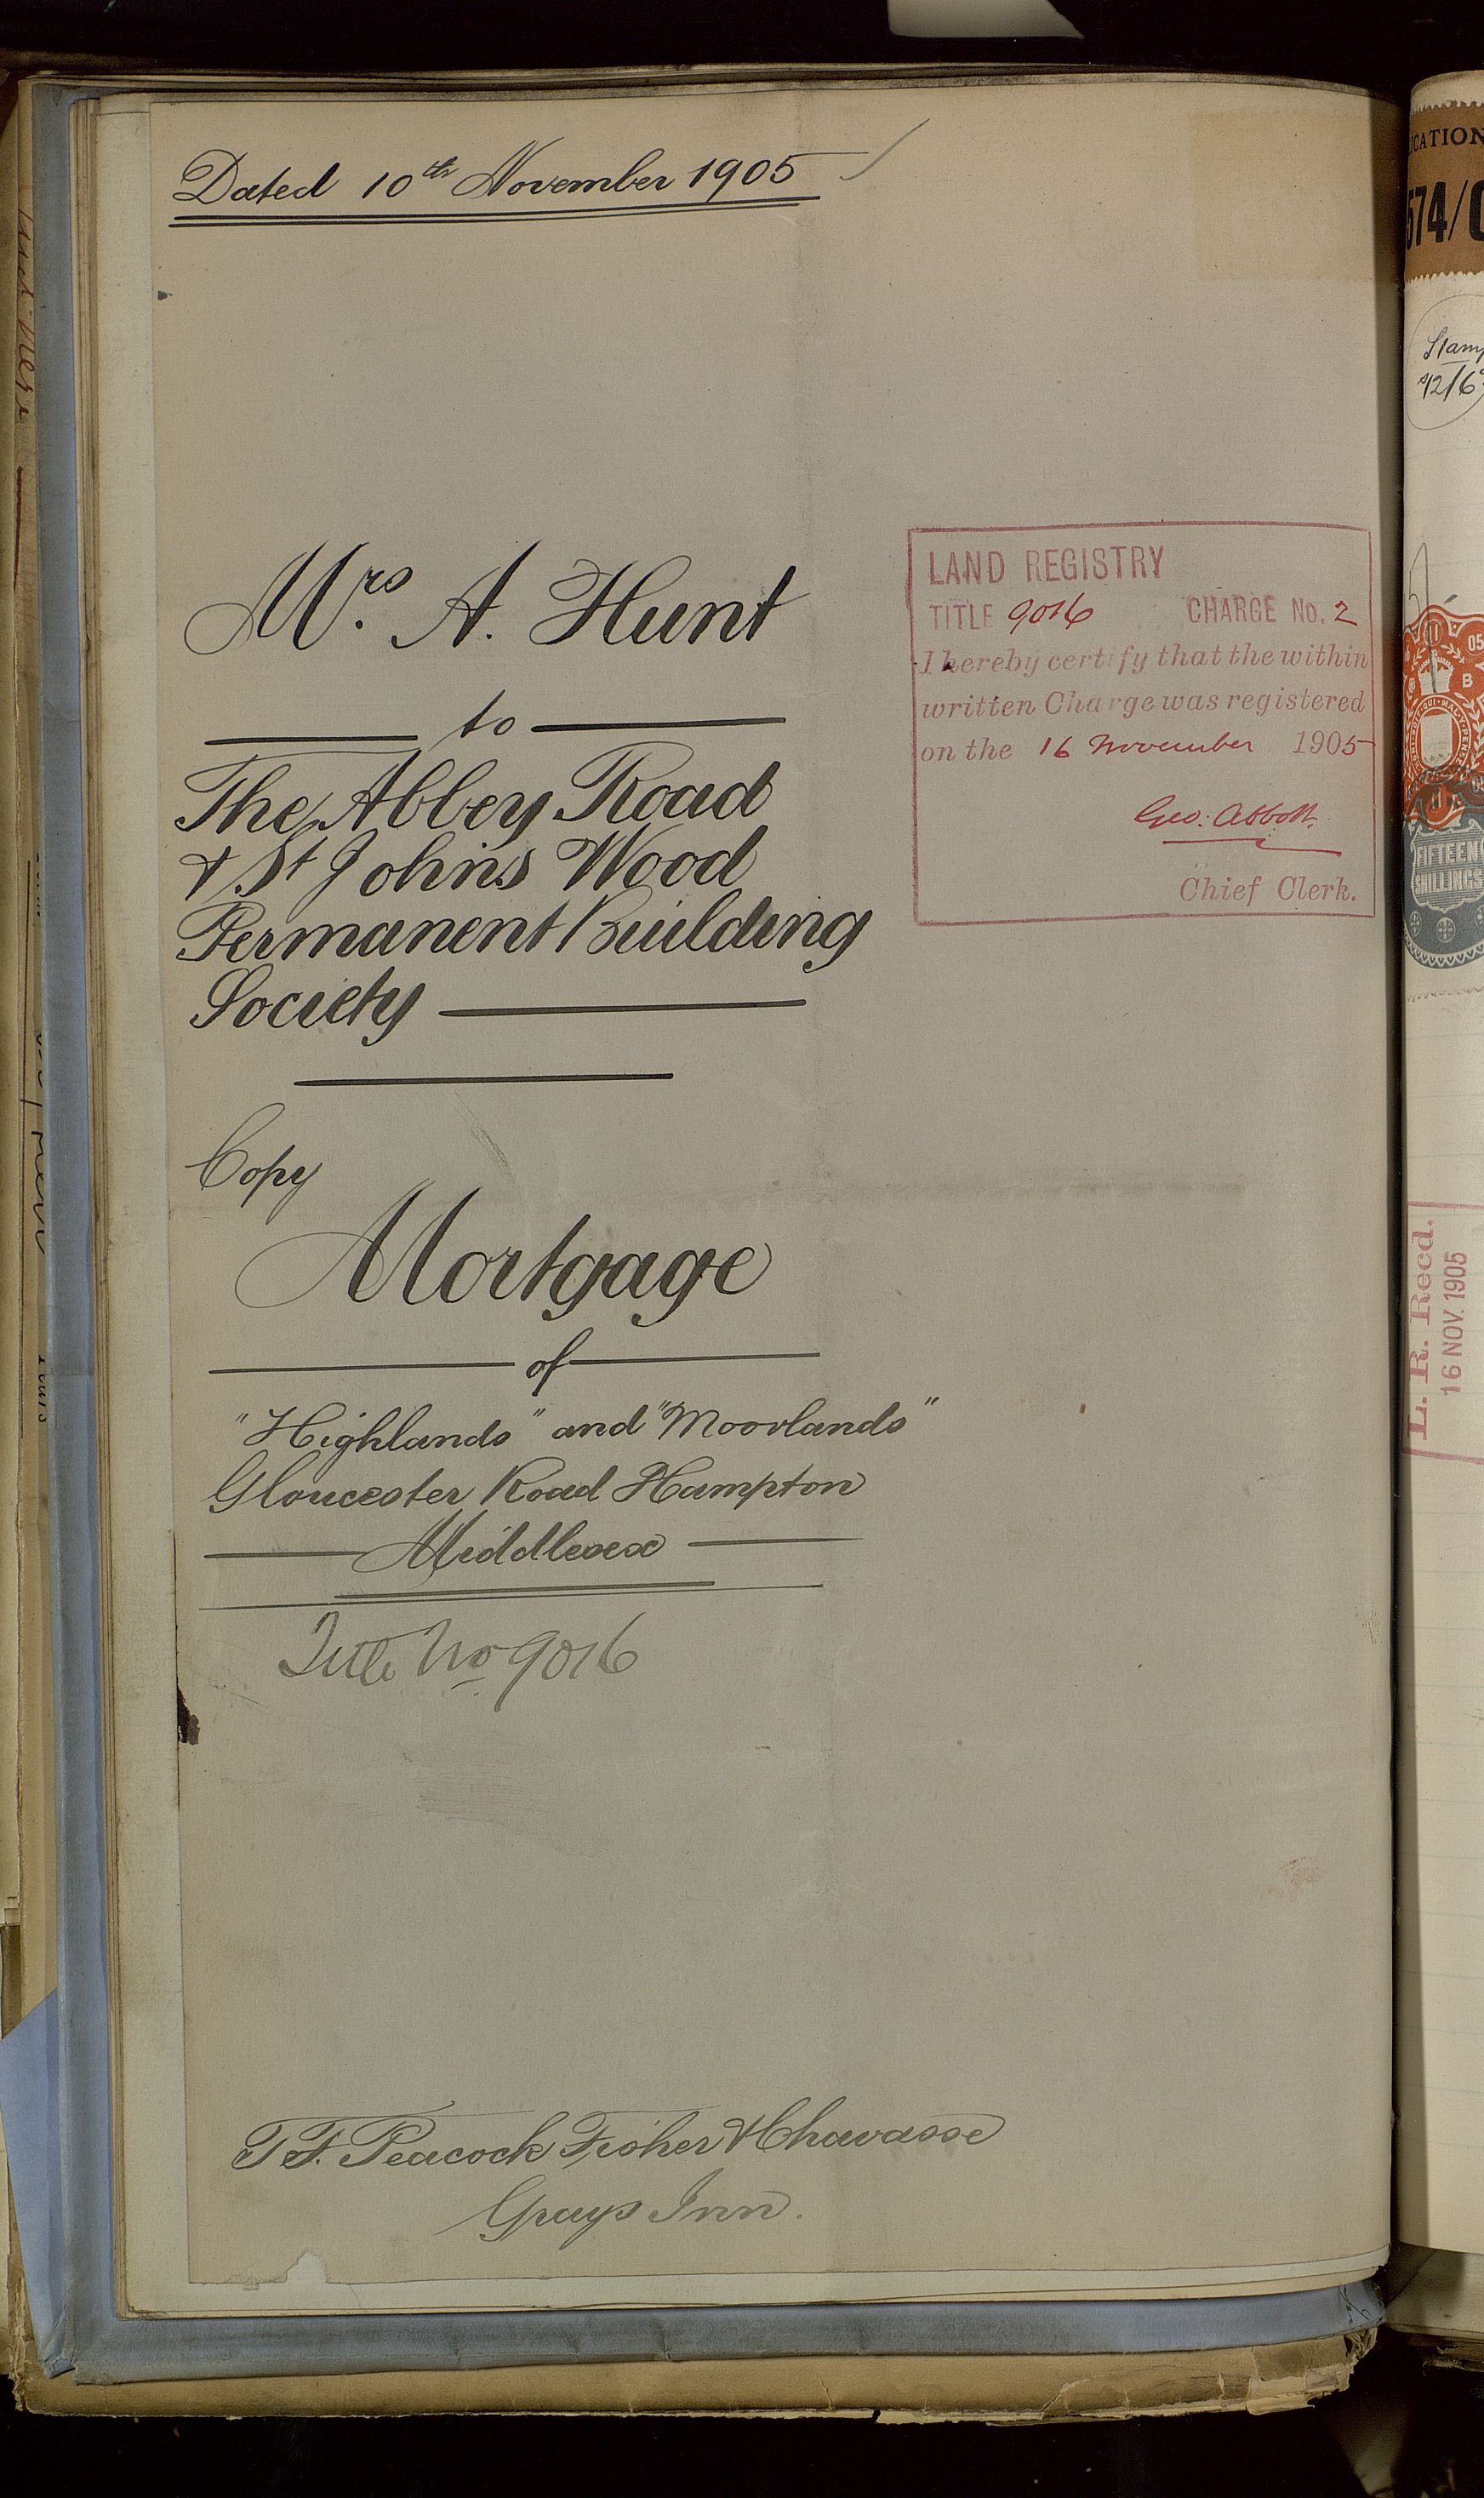 Dated 10th November 1905
Mrs. A. Hunt
to
The Abbey Road
& St Johns Wood
Permanent Building
Society
Copy
Mortgage
of
"Highlands" and "Moorlands"
Gloucester Road Hampton
Middlesex
Title No 9016
T. F. Peacock Fisher & Chavasse
Grays Inn.
LAND REGISTRY
TITLE 9016 CHARGE No. 2
I hereby certify that the within
written Charge was registered
on the 16 November 1905
Geo: Abbott.
Chief Clerk.
574/
12/6
05
B
FIFTEEN
SHILLINGS
L. R. Recd.
16 NOV. 1905